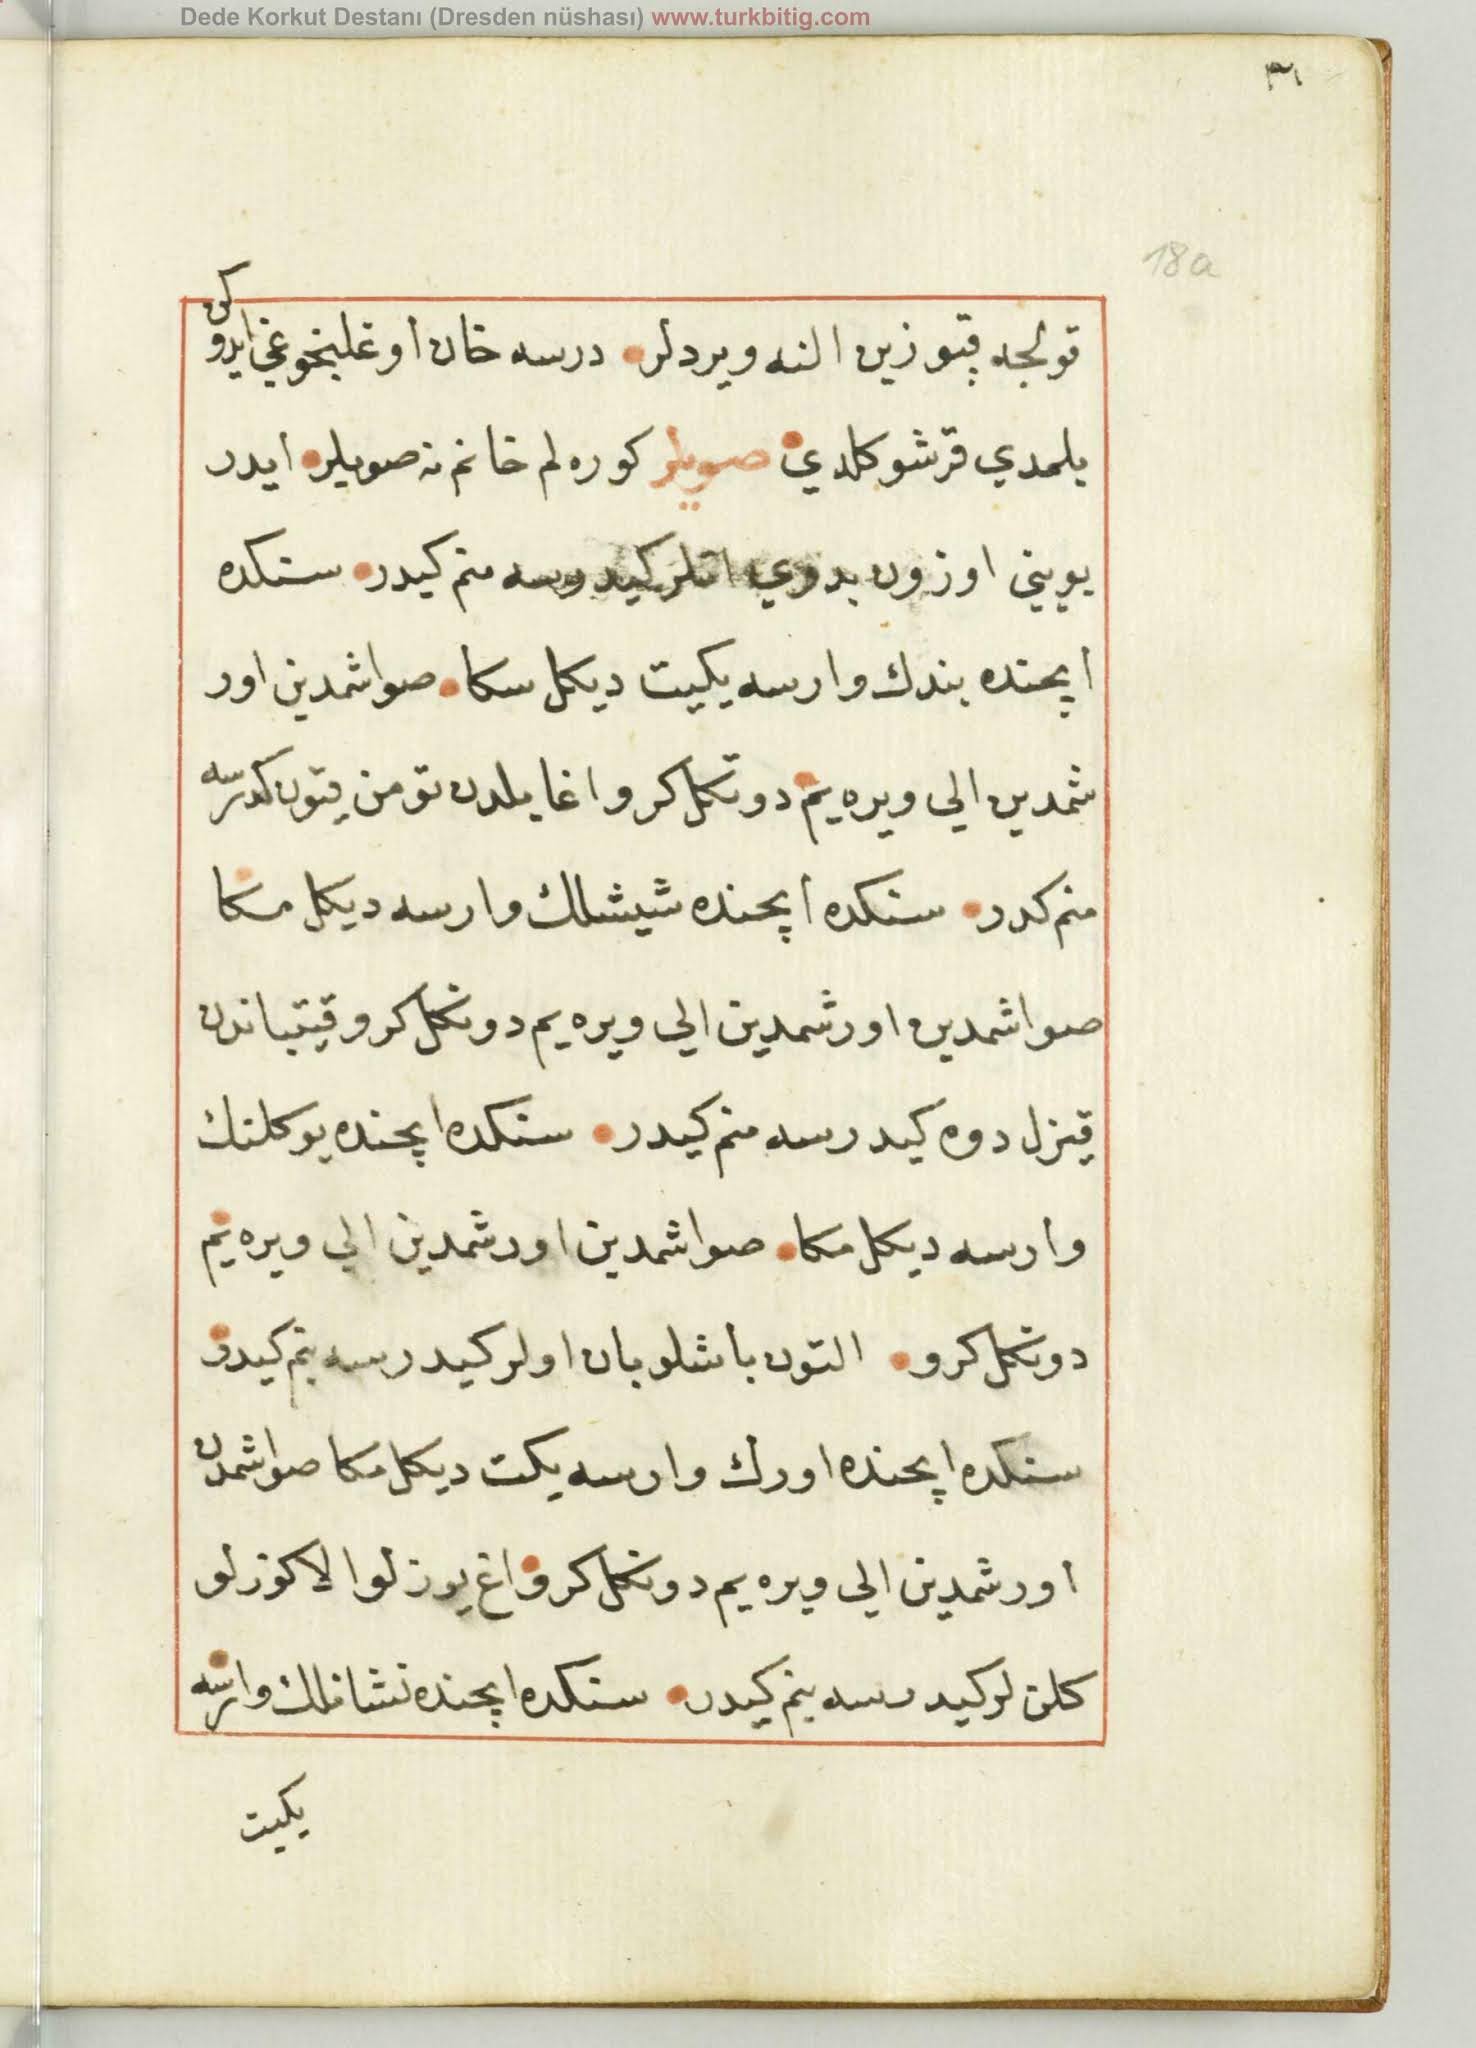 Dede Korkut Destanı (Dresden nüshası) www.turkbitig.com
٣٦
18a
قولجه قپوزين النه ويردلر درسه خان اوغلنجوغي ايدوكن
بلمدي قرشو كلدي صويلر كوره لم خانم نه صويلر ايدر
بويني اوزون بدوي اتلر كيدرسه منم كيدر سنكده
اپچنده بندك وارسه يكيت ديكل سكا صواشمدين اور
شمدين الي ويره يم دونكل كرو اغايلدن تومن قيون كدرسه
منم كدر سنكده اپچنده شيشلك وارسه ديكل مكا
صواشمدين اورشمدين الي ويره يم دونكل كرو قيتباندن
قيزل دوه كيدرسه منم كيدر سنكده اپچنده يوكلنك
وارسه ديكل مكا صواشمدين اورشمدين الي ويره يم
دونكل كرو التون باشلو بان اولر كيدرسه بنم كيدر
سنكده اپچنده اورك وارسه يكت ديكل مكا صواشمدن
اورشمدين الي ويره يم دونكل كرو اغ يوزلو الا كوزلو
كلن لر كيدرسه بنم كيدر سنكده اپچنده نشانلك وارسه
يكيت